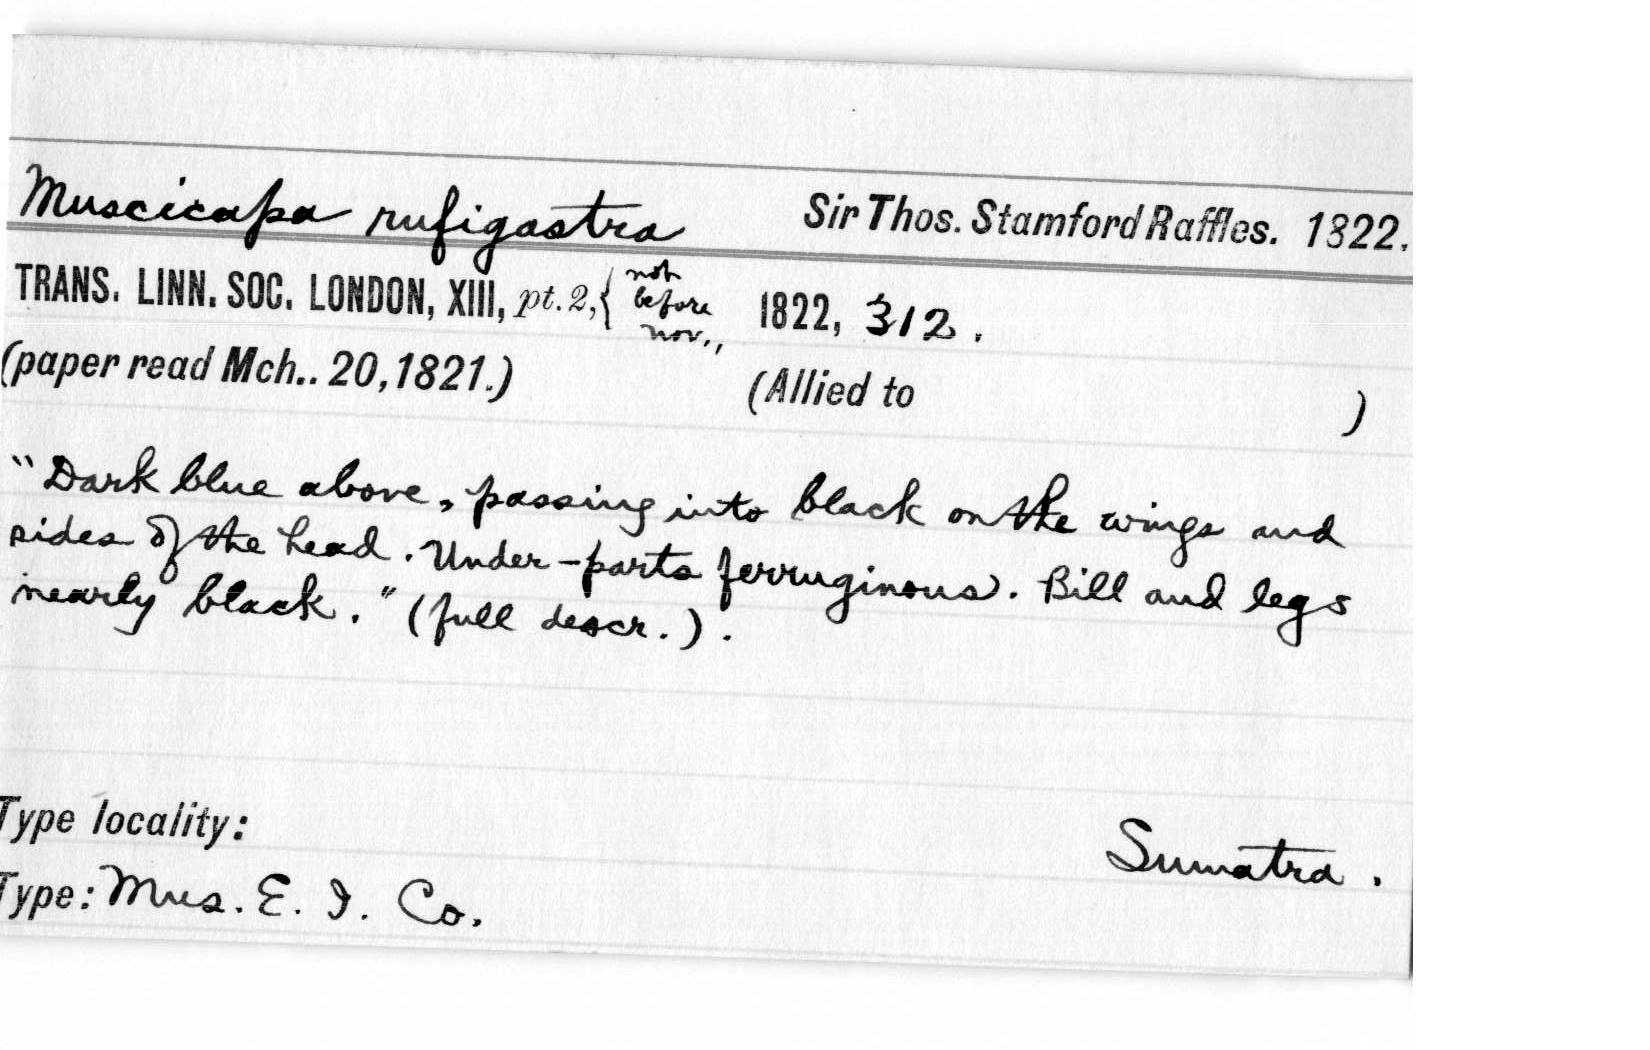 Muscicapa rufigastra Sir Thos. Stamford Raffles. 1822.
TRANS. LINN. SOC. LONDON, XIII, pt. 2, { not before Nov., 1822, 312.
(paper read Mch.. 20, 1821.) (Allied to )
"Dark blue above, passing into black on the wings and
sides of the head. Under-parts ferruginous. Bill and legs
nearly black." (full descr.).
Type locality: Sumatra.
Type: Mus. E. I. Co.